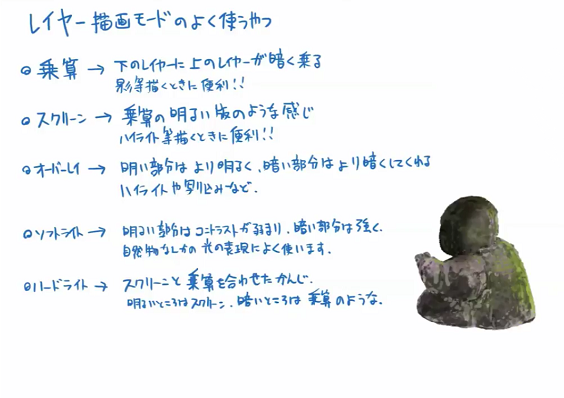 レイヤー描画モードのよく使うやつ
乗算 → 下のレイヤーに上のレイヤーが暗く乗る
影等描くときに便利!!
スクリーン → 乗算の明るい版のような感じ
ハイライト等描くときに便利!!
オーバーレイ → 明い部分はより明るく、暗い部分はより暗くしてくれる
ハイライトや写り込みなど.
ソフトライト → 明るい部分はコントラストが弱まり、暗い部分は強く.
自然物なしかの光の表現によく使います.
ハードライト → スクリーンと乗算を合わせたかんじ.
明るいところはスクリーン、暗いところは乗算のような.